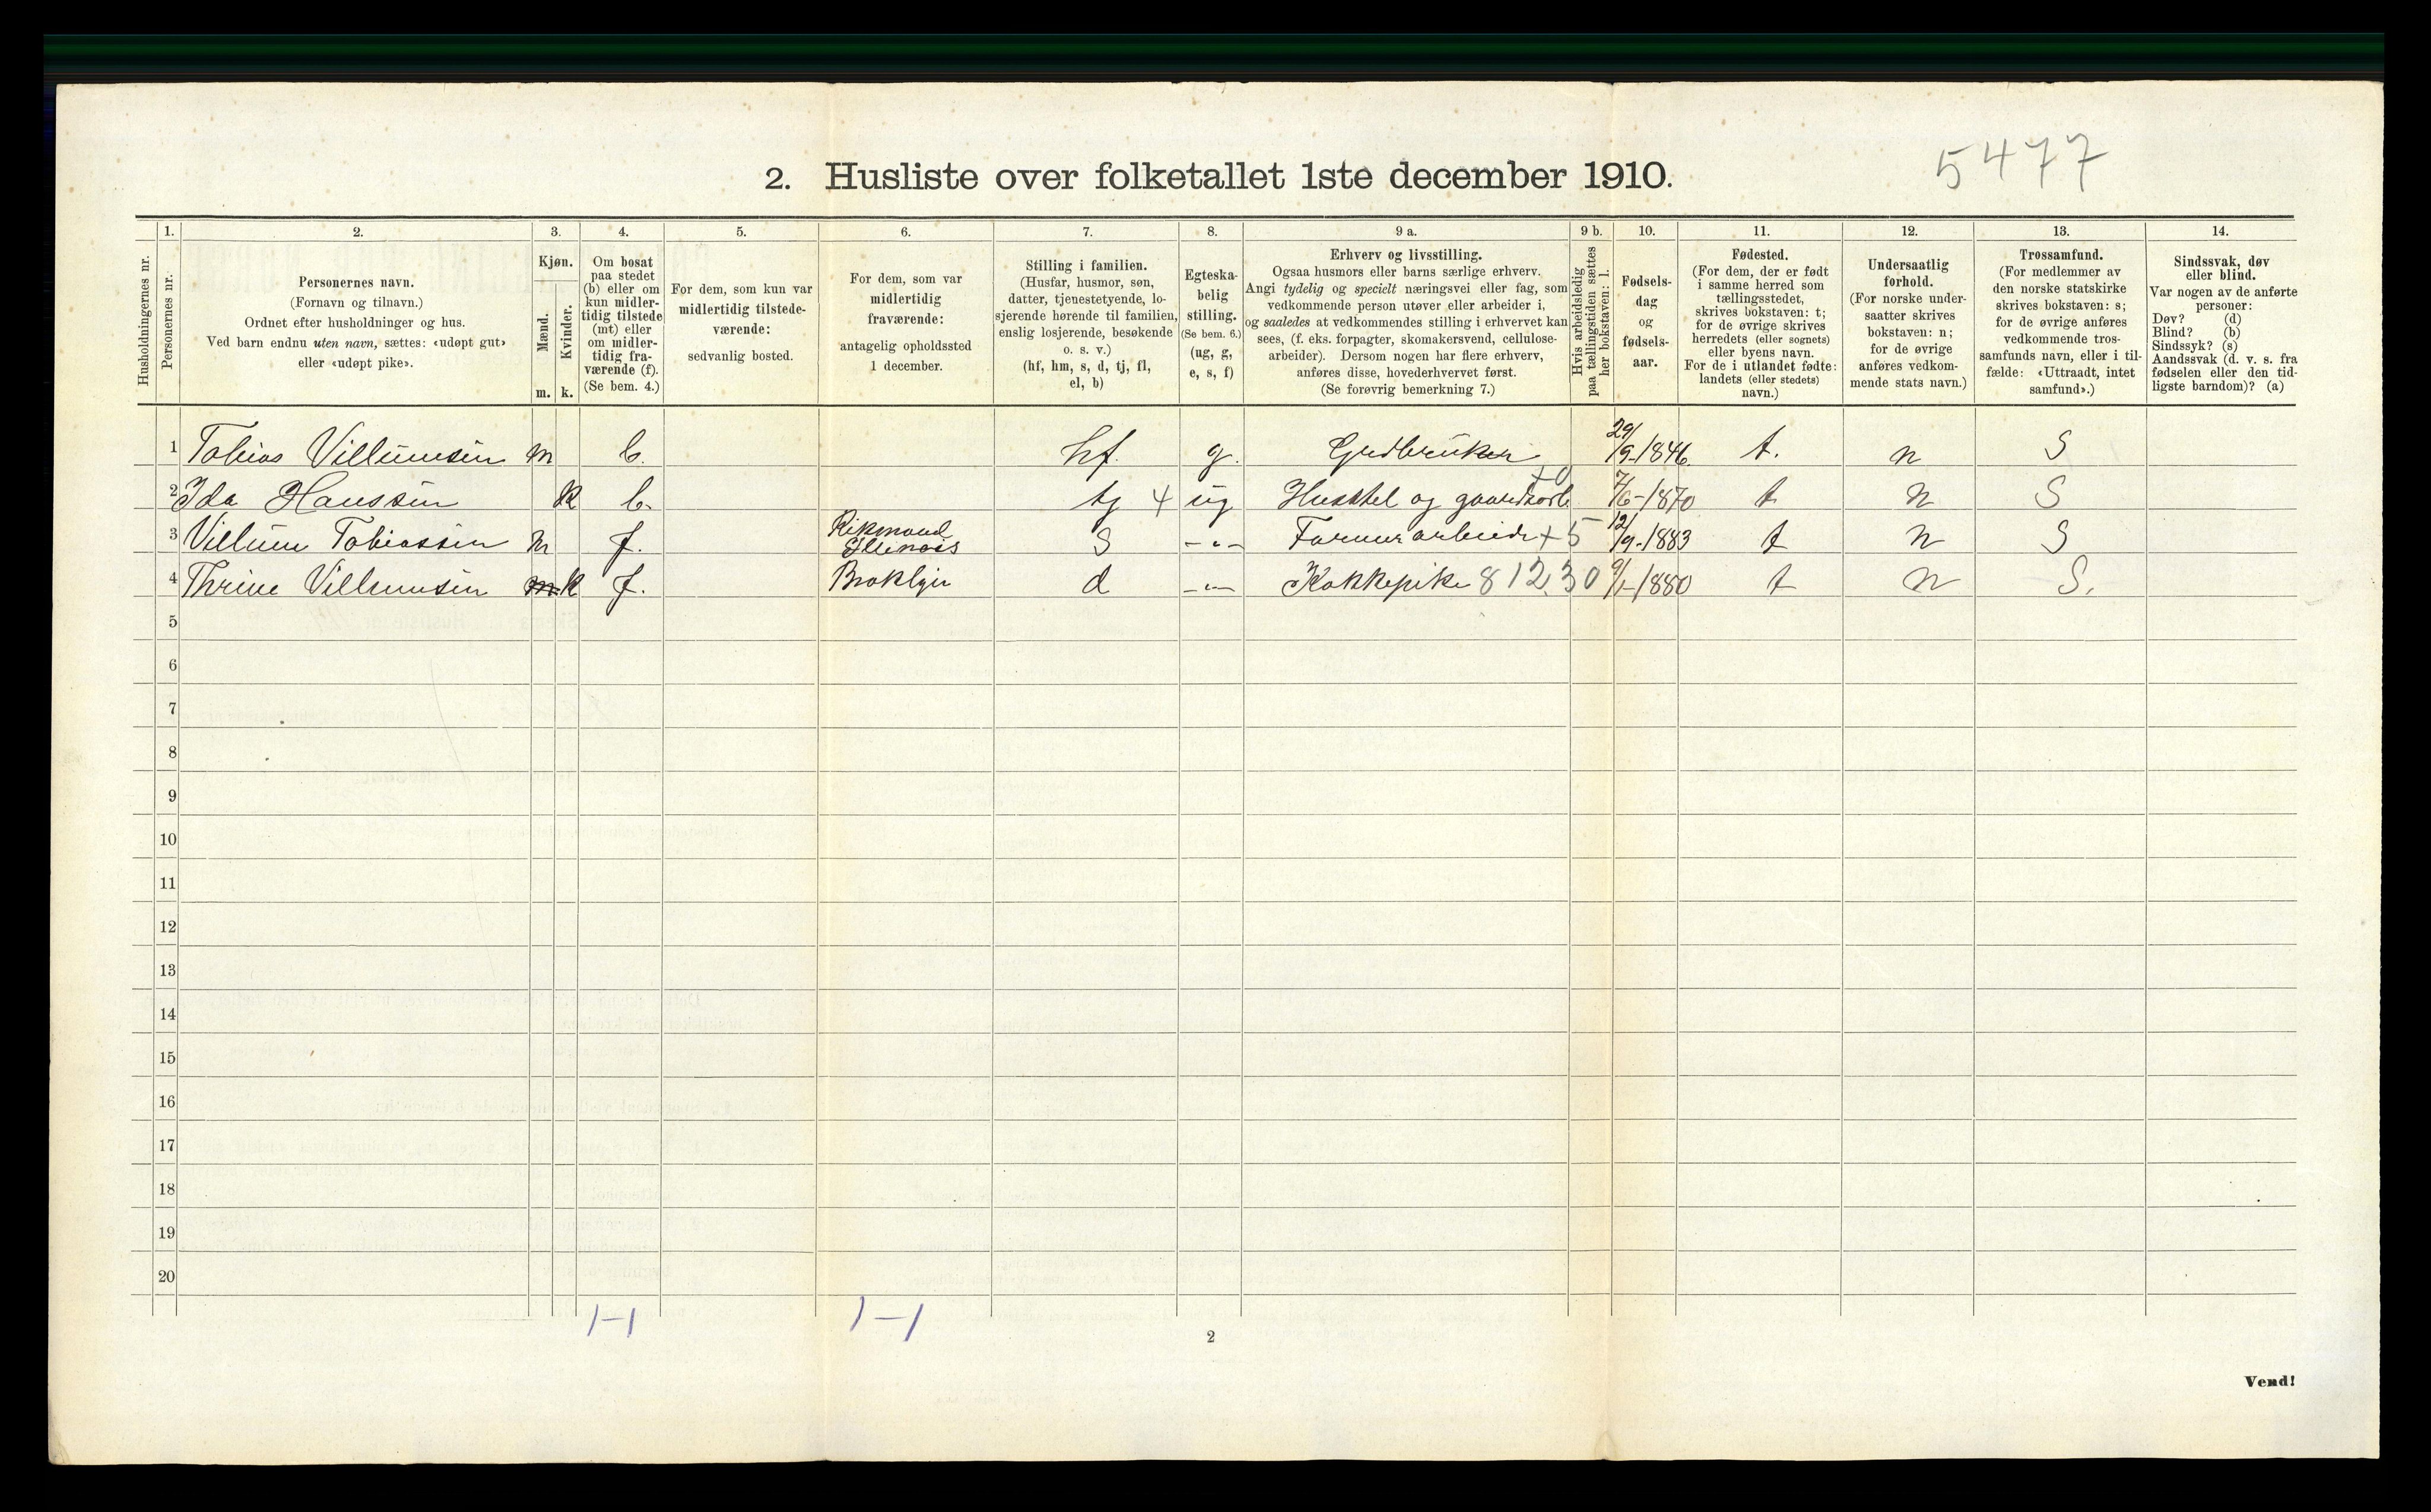 5477
2. Husliste over folketallet 1ste december 1910.
Husholdningernes nr.
1.
Personernes nr.
2.
Personernes navn.
(Fornavn og tilnavn.)
Ordnet efter husholdninger og hus.
Ved barn endnu uten navn, sættes: «udøpt gut»
eller «udøpt pike».
3.
Kjøn.
Mænd.
Kvinder.
m. k.
4.
Om bosat
paa stedet
(b) eller om
kun midler-
tidig tilstede
(mt) eller
om midler-
tidig fra-
værende (f).
(Se bem. 4.)
5.
For dem, som kun var
midlertidig tilstede-
værende:
sedvanlig bosted.
6.
For dem, som var
midlertidig
fraværende:
antagelig opholdssted
1 december.
7.
Stilling i familien.
(Husfar, husmor, søn,
datter, tjenestetyende, lo-
sjerende hørende til familien,
enslig losjerende, besøkende
o. s. v.)
(hf, hm, s, d, tj, fl,
el, b)
8.
Egteska-
belig
stilling.
(Se bem. 6.)
(ug, g,
e, s, f)
9 a.
Erhverv og livsstilling.
Ogsaa husmors eller barns særlige erhverv.
Angi tydelig og specielt næringsvei eller fag, som
vedkommende person utøver eller arbeider i,
og saaledes at vedkommendes stilling i erhvervet kan
sees, (f. eks. forpagter, skomakersvend, cellulose-
arbeider). Dersom nogen har flere erhverv,
anføres disse, hovederhvervet først.
(Se forøvrig bemerkning 7.)
9 b.
Hvis arbeidsledig
paa tællingstiden sættes
her bokstaven: l.
10.
Fødsels-
dag
og
fødsels-
aar.
11.
Fødested.
(For dem, der er født
i samme herred som
tællingsstedet,
skrives bokstaven: t;
for de øvrige skrives
herredets (eller sognets)
eller byens navn.
For de i utlandet fødte:
landets (eller stedets)
navn.)
12.
Undersaatlig
forhold.
(For norske under-
saatter skrives
bokstaven: n;
for de øvrige
anføres vedkom-
mende stats navn.)
13.
Trossamfund.
(For medlemmer av
den norske statskirke
skrives bokstaven: s;
for de øvrige anføres
vedkommende tros-
samfunds navn, eller i til-
fælde: «Uttraadt, intet
samfund».)
14.
Sindssvak, døv
eller blind.
Var nogen av de anførte
personer:
Døv? (d)
Blind? (b)
Sindssyk? (s)
Aandssvak (d. v. s. fra
fødselen eller den tid-
ligste barndom)? (a)
1 Tobias Villumsen m b. hf. g. Grdbruker 29/9-1846 t. n S
2 Ida Hanssen k b. tj 4 ug Husstel og gaardsarb. 7/6-1870 t n S
3 Villum Tobiassen m f. Rikmond Illinois S -"- Farmerarbeider +5 12/9-1883 t n S
4 Thrine Villumsen m k f. Broklyn d -"- Kokkepike 812.30 9/1-1880 t n S.
5
6
7
8
9
10
11
12
13
14
15
16
17
18
19
20
1-1 1-1
2
Vend!